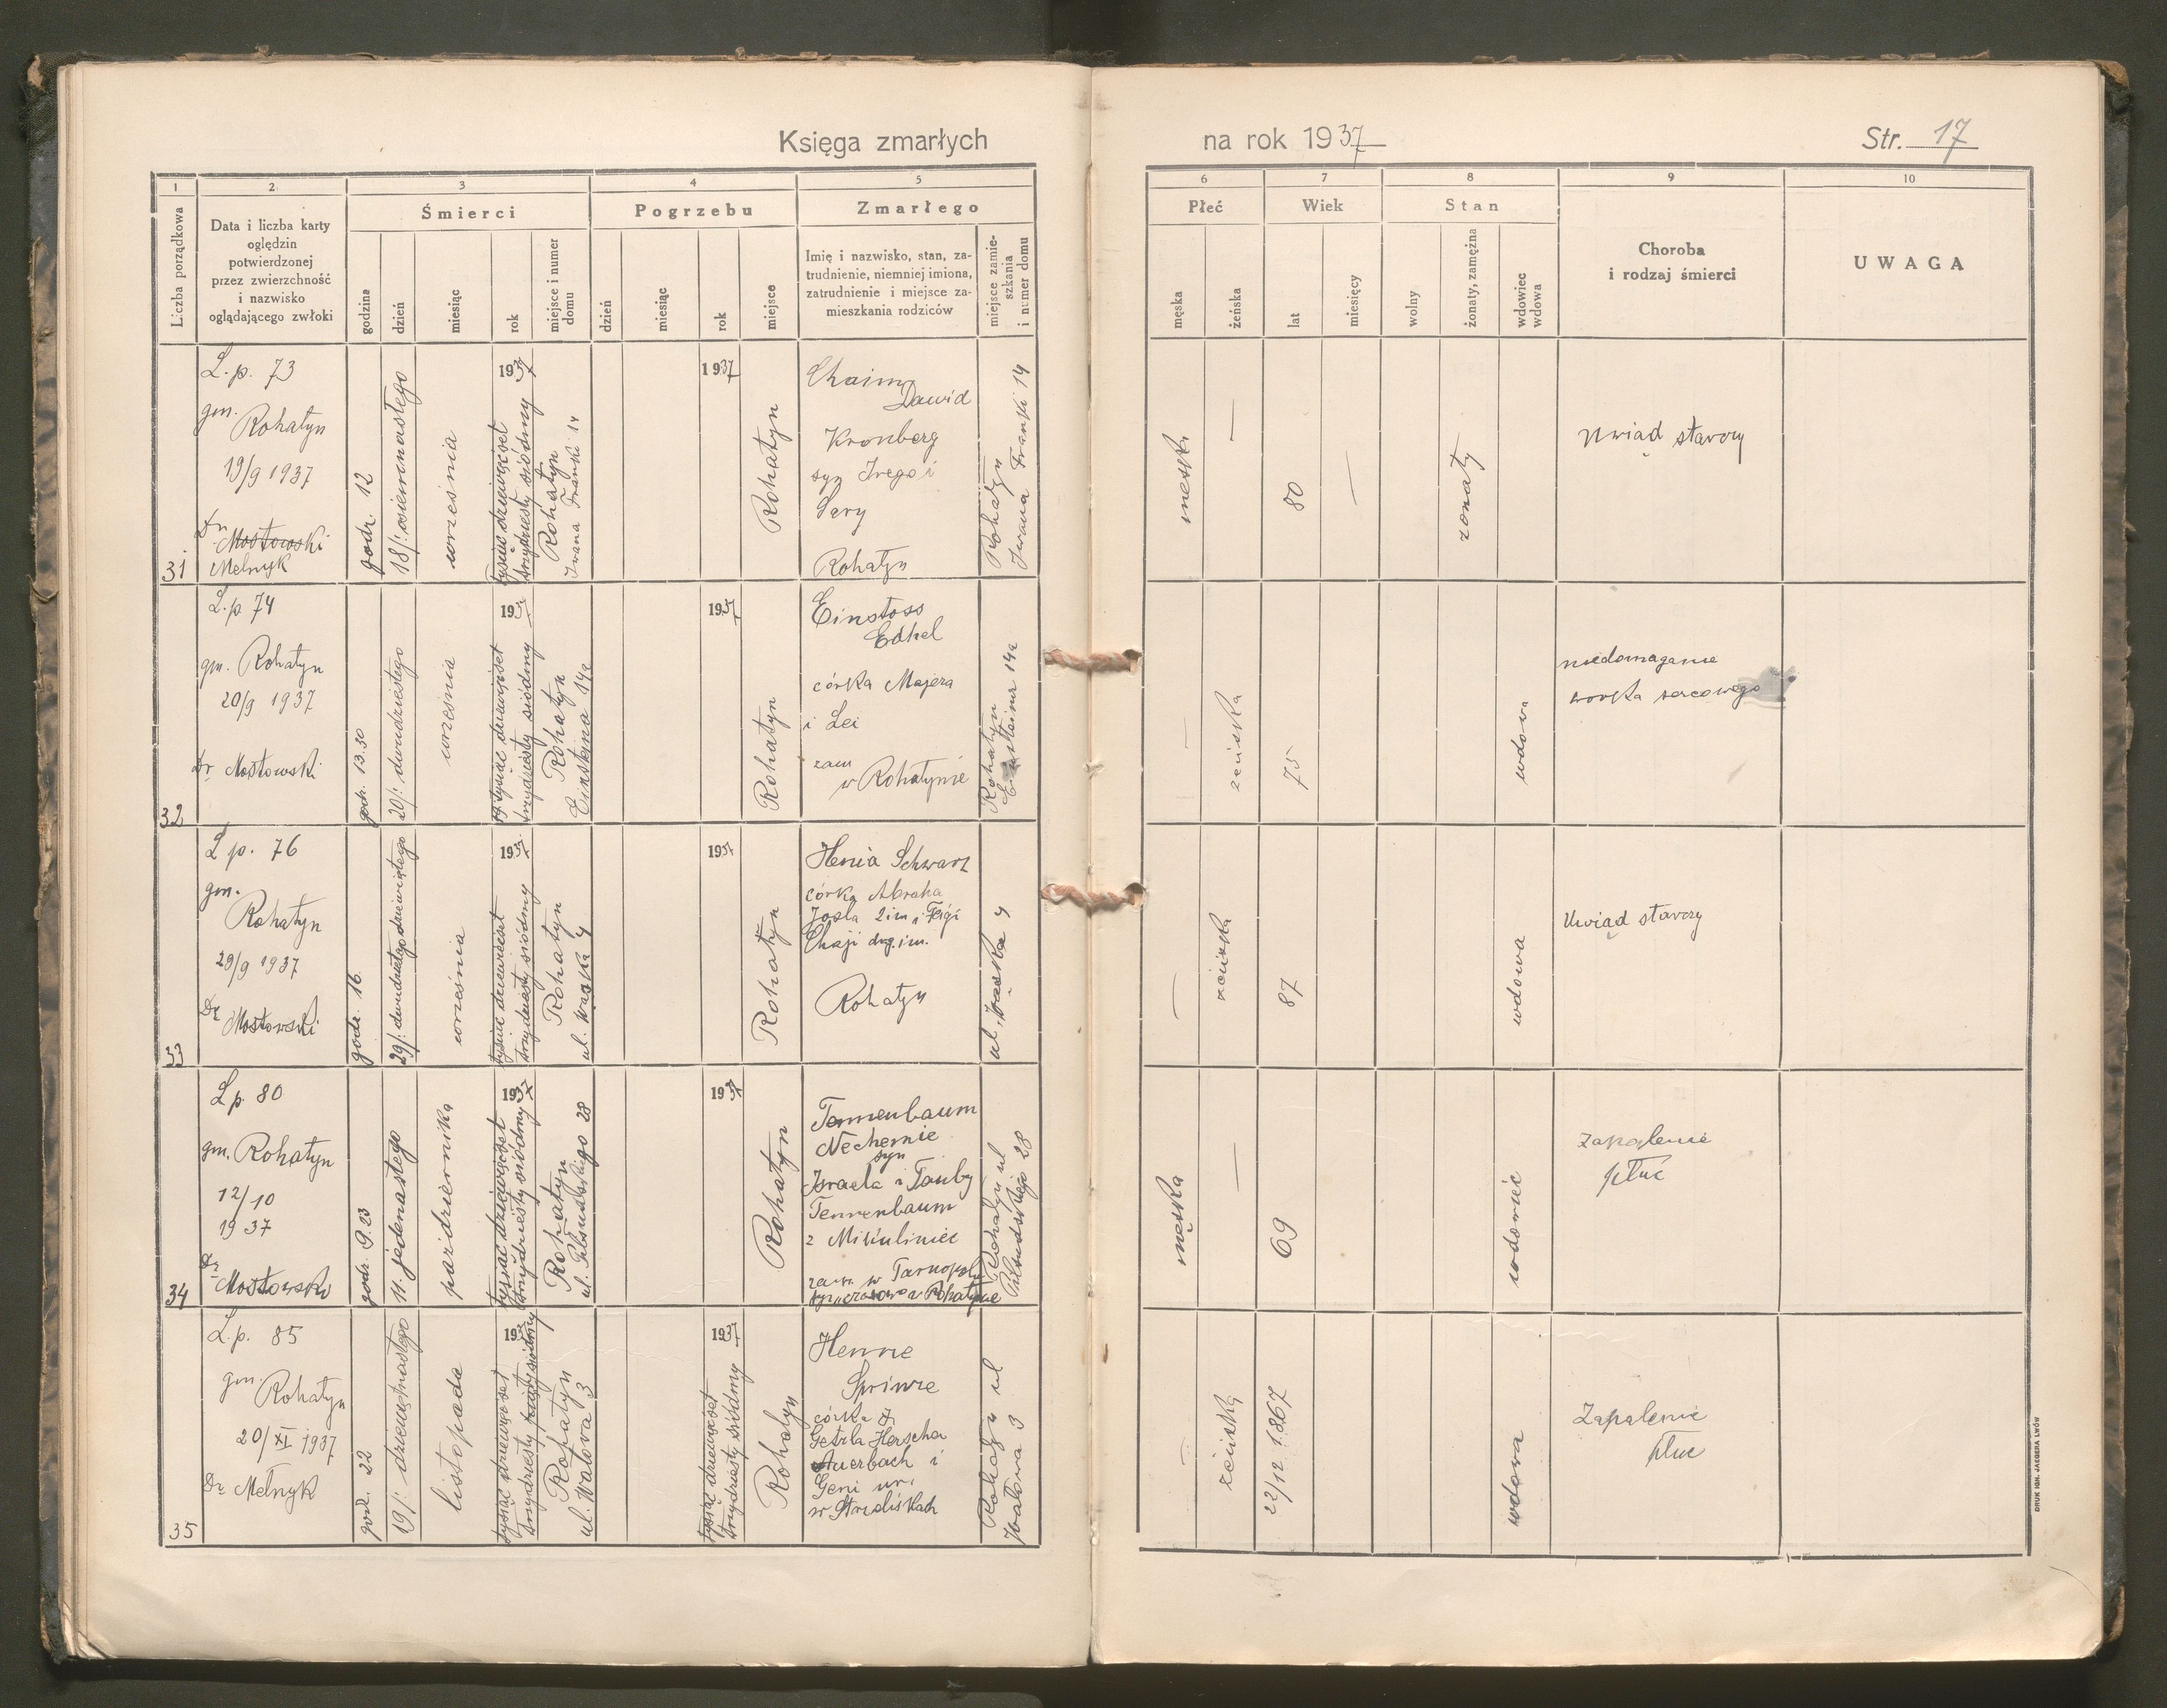 Księga zmarłych
na rok 1937
Str. 17
1
2
3
4
5
6
7
8
9
10
Liczba porządkowa
Data i liczba karty
oględzin
potwierdzonej
przez zwierzchność
i nazwisko
oglądającego zwłoki
Śmierci
godzina
dzień
miesiąc
rok
miejsce i numer
domu
Pogrzebu
dzień
miesiąc
rok
miejsce
Zmarłego
Imię i nazwisko, stan, za-
trudnienie, niemniej imiona,
zatrudnienie i miejsce za-
mieszkania rodziców
miejsce zamie-
szkania
i numer domu
Płeć
męska
żeńska
Wiek
lat
miesięcy
Stan
wolny
żonaty, zamężna
wdowiec
wdowa
Choroba
i rodzaj śmierci
UWAGA
31
L.p. 73
gm.
Rohatyn
19/9 1937
Dr
Mostowski
Melnyk
godz. 12
18/: osiemnastego
września
1937
tysiąc dziewięćset
trzydziesty siódmy
Rohatyn
Iwana Franki 14
1937
Rohatyn
Chaim
Dawid
Kronberg
syn
Sary
Rohatyn
Rohatyn
Iwana Franki 14
męski
—
80
—
żonaty
Uwiąd starczy
32
L.p 74
gm. Rohatyn
20/9 1937
Dr Mostowski
godz. 13.30
20/: dwudziestego
września
1937
tysiąc dziewięćset
trzydziesty siódmy
Rohatyn
Einstejna 14a
1937
Rohatyn
Einstoss
Edhel
córka Majera
i Lei
zam
w Rohatynie
Rohatyn
14a
—
żeńska
75
wdowa
niedomaganie
worka sercowego
33
L p. 76
gm.
Rohatyn
29/9 1937
Dr
Mostowski
godz. 16
29/: dwudziestego dziewiątego
września
1937
tysiąc dziewięćset
trzydziesty siódmy
Rohatyn
ul. Wąska 4
1937
Rohatyn
Henia Schwarz
córka Abraha
Josla 2 im i Feigi
Chaji drg. im.
Rohatyn
ul. Wąska 4
—
żeńska
87
wdowa
Uwiąd starczy
34
L p. 80
gm. Rohatyn
12/10
1937
Dr
Mostowski
godz. 9.23
11. jedenastego
października
1937
tysiąc dziewięćset
trzydziesty siódmy
Rohatyn
ul. Piłsudskiego 28
1937
Rohatyn
Tennenbaum
Nechemie
syn
Israela i Tauby
Tennenbaum
z Mikuliniec
zam. w Tarnopolu
tymczasowo w Rohatynie
Rohatyn ul
Piłsudskiego 28
męska
—
69
wdowiec
Zapalenie
płuc
35
L.p. 85
gm.
Rohatyn
20/XI 1937
Dr Melnyk
godz. 22
19/: dziewiętnastego
listopada
1937
tysiąc dziewięćset
trzydziesty siódmy
Rohatyn
ul. Wałowa 3
1937
tysiąc dziewięćset
trzydziesty siódmy
Rohatyn
Henne
Sprinze
córka
Getzla Herscha
Auerbach i
Geni ur.
w Strzeliskach
Rohatyn ul
Wałowa 3
—
żeńska
22/12 1867
wdowa
Zapalenie
płuc
DRUK IGN. JAEGERA LWÓW